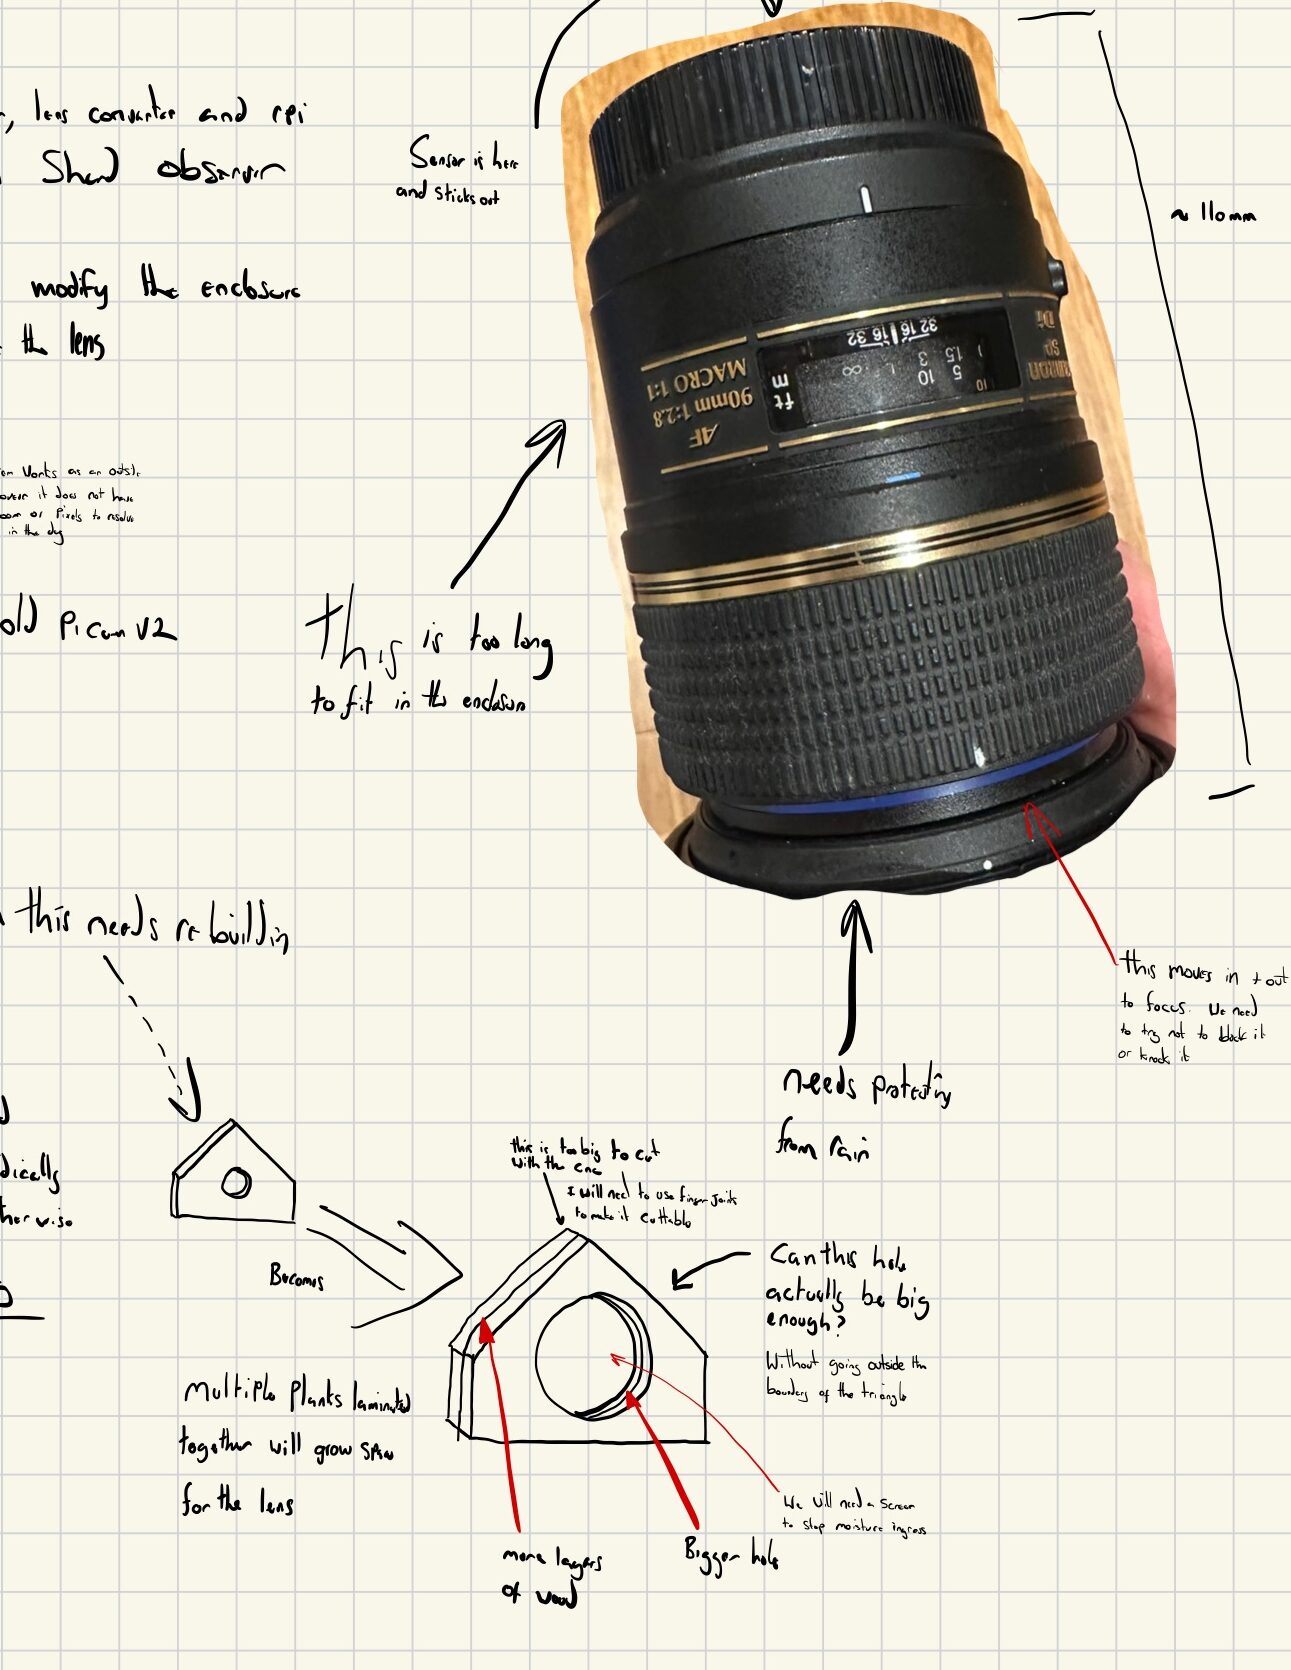 , lens converter and rpi
Shed observer
modify the enclosure
the lens
works as an outside
it does not have
or pixels to resolve
in the dog
old PicamV2
this needs rebuilding
Sensor is here
and sticks out
~ 110mm
This is too long
to fit in the enclosure
AF
90mm 1:2.8
MACRO 1:1
ft
m
10 5 10
1 1.5 3 ∞
32 16 16 32
Di
SP
this moves in + out
to focus. We need
to try not to block it
or knock it
needs protecting
from rain
this is too big to cut
with the cnc
I will need to use finger joints
to make it cuttable
Becomes
Can this hole
actually be big
enough?
Without going outside the
boundary of the triangle
Multiple planks laminated
together will grow space
for the lens
We will need a screen
to stop moisture ingress
more layers
of wood
Bigger hole